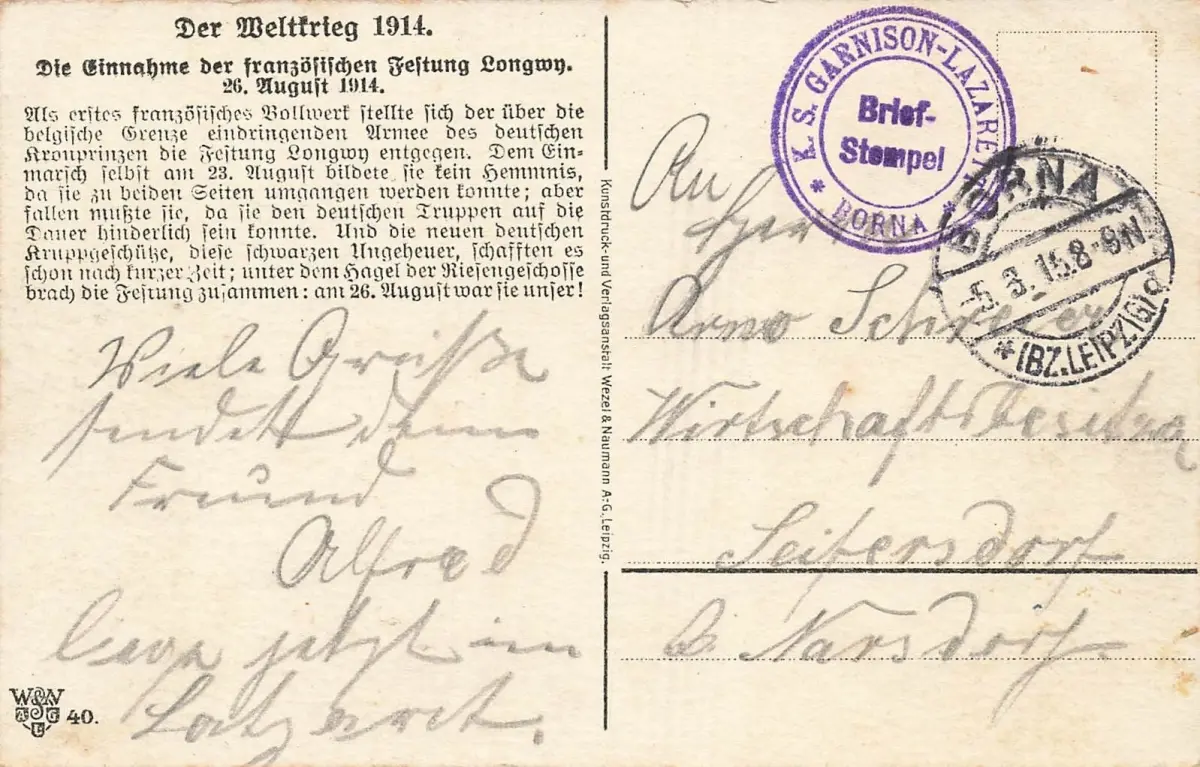 Der Weltkrieg 1914.
Die Einnahme der französischen Festung Longwy.
26. August 1914.
Als erstes französisches Bollwerk stellte sich der über die
belgische Grenze eindringenden Armee des deutschen
Kronprinzen die Festung Longwy entgegen. Dem Ein-
marsch selbst am 23. August bildete sie kein Hemmnis,
da sie zu beiden Seiten umgangen werden konnte; aber
fallen mußte sie, da sie den deutschen Truppen auf die
Dauer hinderlich sein konnte. Und die neuen deutschen
Kruppgeschütze, diese schwarzen Ungeheuer, schafften es
schon nach kurzer Zeit; unter dem Hagel der Riesengeschosse
brach die Festung zusammen: am 26. August war sie unser!
Viele Grüße
sendett dein
Freund
Alfred
jetzt im
Latzaret.
W&N
A G
L
40.
Kunstdruck- und Verlagsanstalt Wezel & Naumann A.-G., Leipzig.
K. S. GARNISON-LAZARET
Brief-
Stempel
* BORNA *
BORNA
-5.3.15.8-9N
* (BZ. LEIPZIG) d
An
Herrn
Arno
Wirtschaftsbesitzer
Seifersdorf
b. Narsdorf